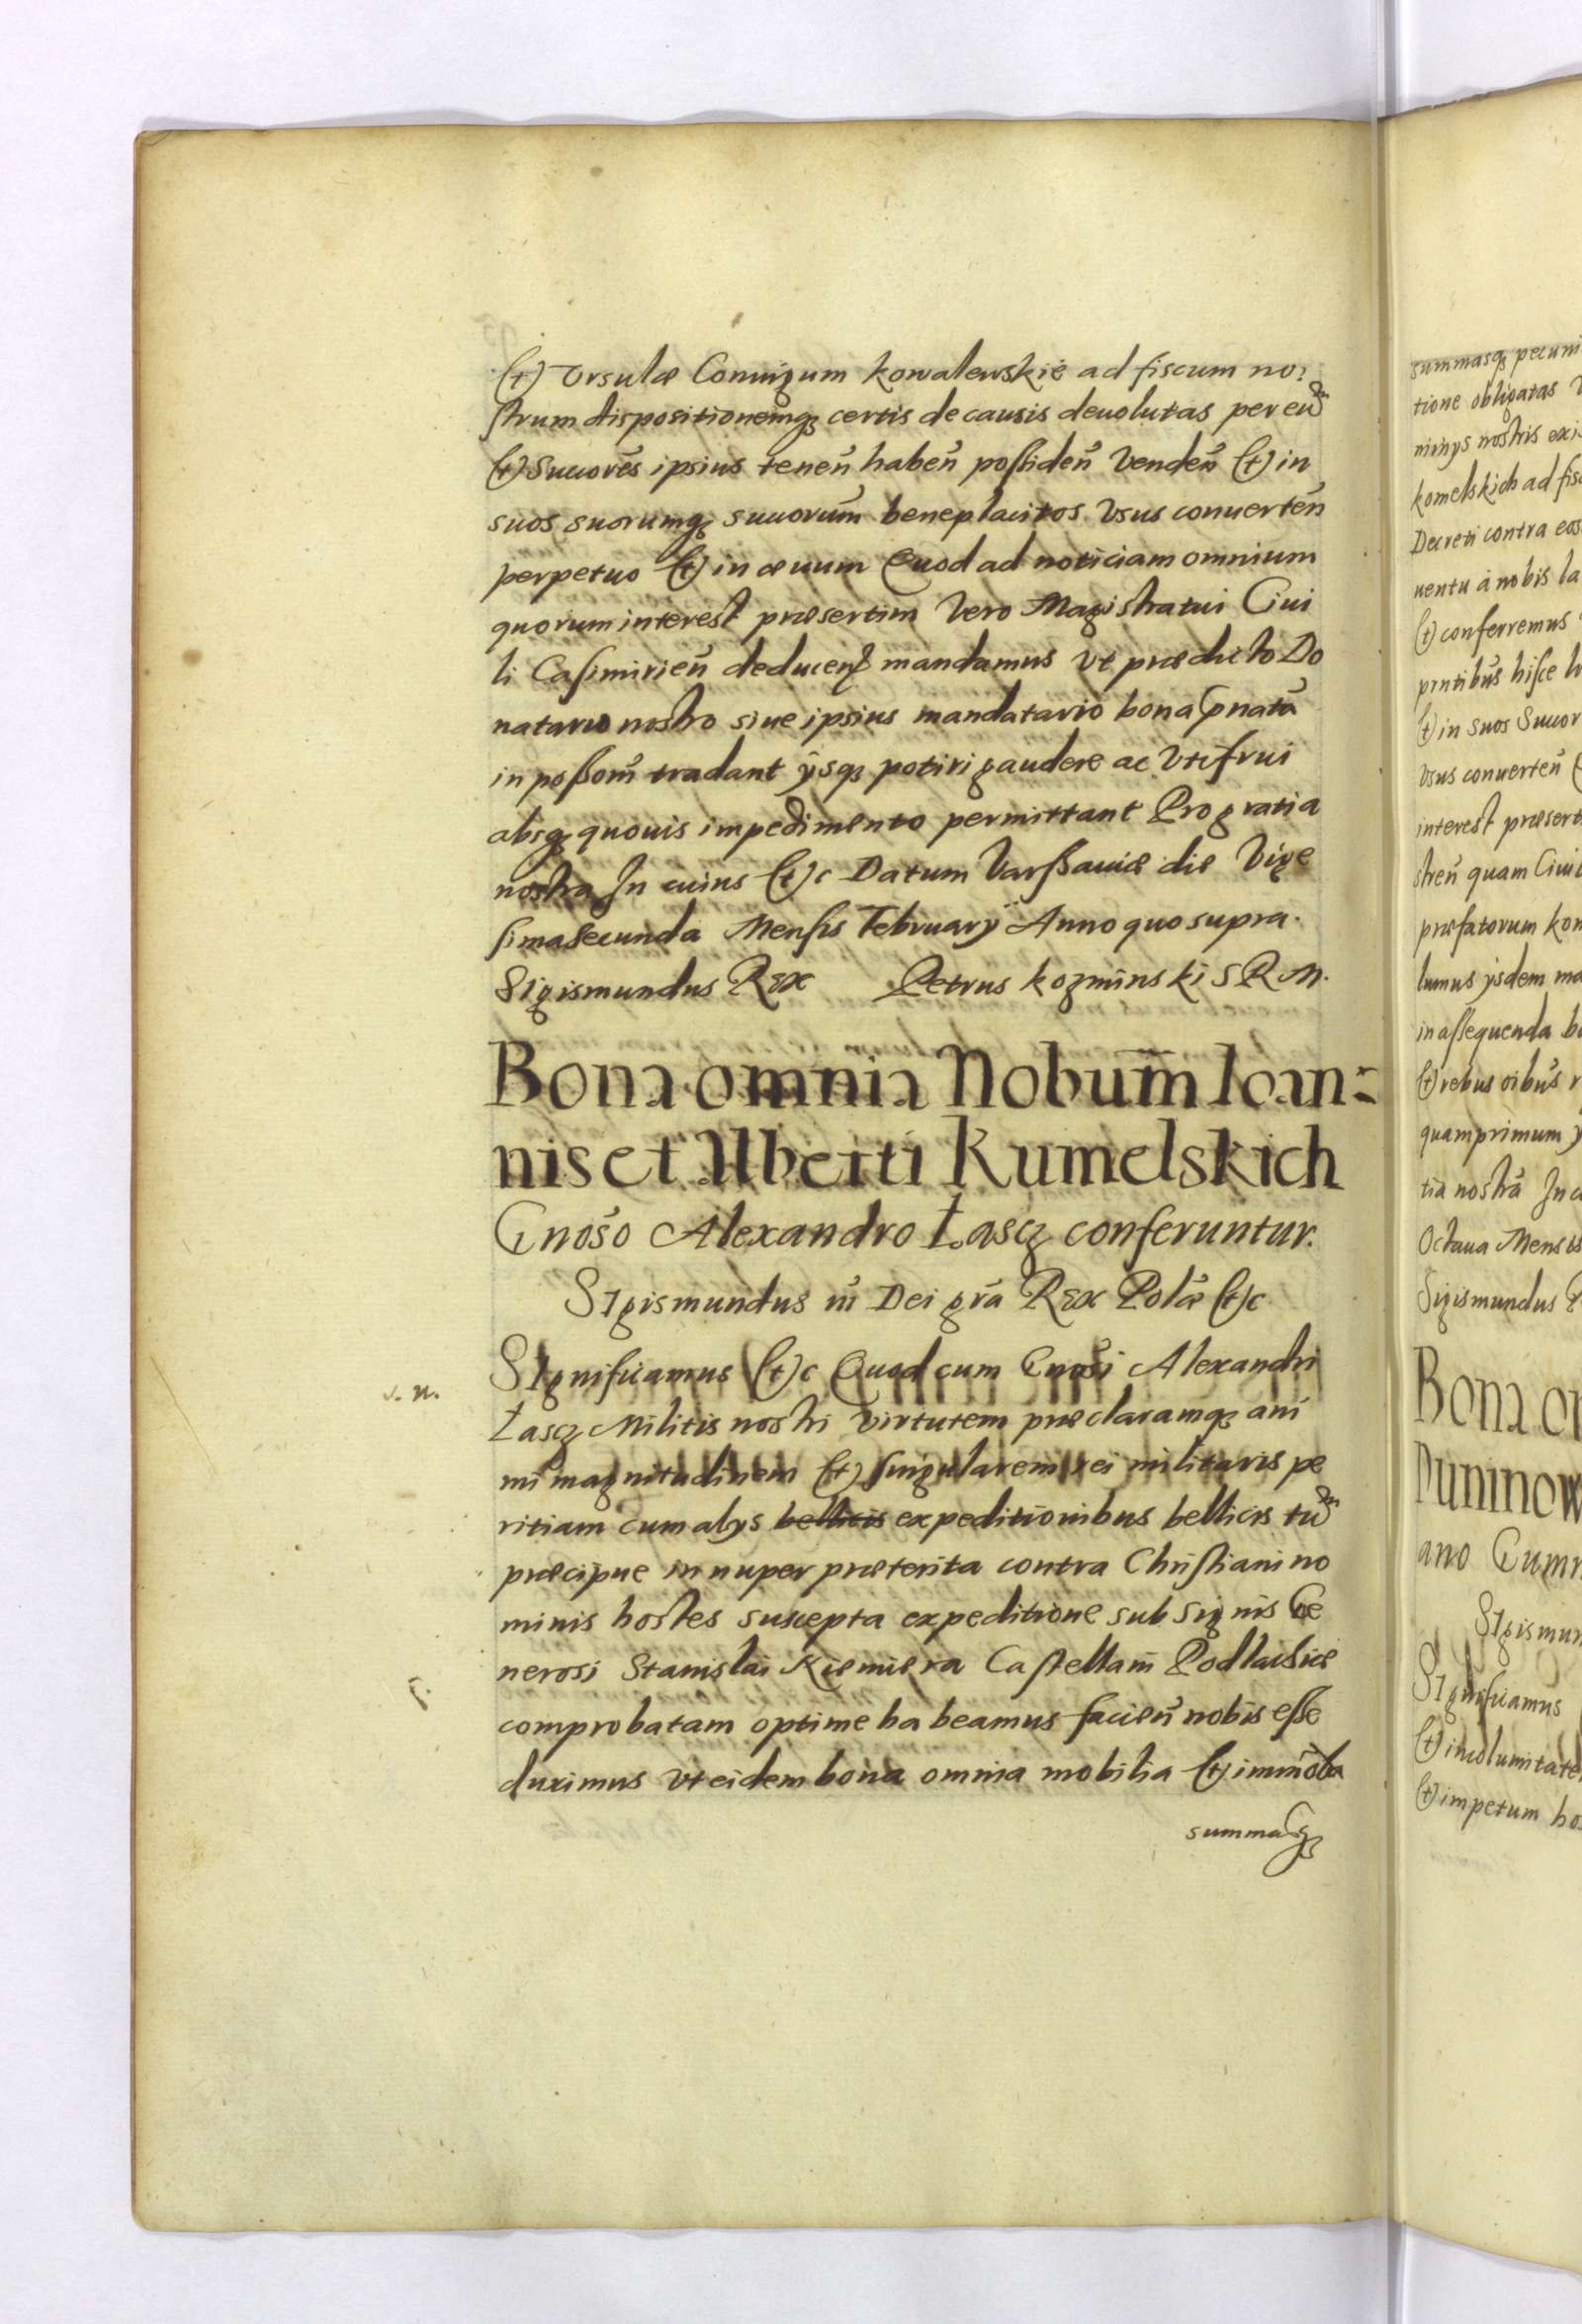 (et) Vrsulæ Coniugum Kowalewskie ad fiscum no:
strum dispositionemqꝫ certis de causis deuolutas per eūdem
(et) Succorēs ipsius tenen̄ haben̄ possiden̄ Venden̄ (et) in
suos suorumqꝫ succorum̄ beneplacitos Vsus conuerten̄
perpetuo (et) in æuum Quod ad noticiam omnium
quorum interest præsertim Vero Magistratui Ciui
li Casimirien̄ deducen̄ mandamus Vt prædicto Do
natario nostro siue ipsius mandatario bona pnatā
in possom̄ tradant ÿsqꝫ potiri gaudere ac Vtifrui
absqꝫ quouis impedimento permittant Pro gratia
nostra In cuius (et)c Datum Varssauiæ die Vige
sima Secunda Mensis February Anno quo supra.
SIgismundus Rex Petrus Kozminski S R M.
Bona omnia Nobum̄ Ioan:
nis et Alberti Kumelskich
Gnōso Alexandro Łascz conferuntur.
SIgismundus iii Dei grā Rex Polæ (et)c
SIgnificamus (et)c Quod cum Gnōsi Alexandri
Łascz Militis nostri virtutem præclaramqꝫ ani
mi magnitudinem (et) singularem rei militaris pe
ritiam cum alys bellicis expeditionibus bellicis tum
præcipue in nuper præterita contra Christiani no
minis hostes suscepta expeditione sub signis Ge
nerosi Stanislai Niemiera Castellani Podlachiæ
comprobatam optime habeamus facien̄ nobis esse
duximus vt eidem bona omnia mobilia (et) immōba
v. n.
summasqꝫ
summasqꝫ pecuni
tione obligatas
minys nostris exis
komelskich ad fis
Decreti contra eos
uentu à nobis la
(et) conferremus
pntibus hisce
(et) in suos Succor
Vsus conuerten̄
interest præsert
stren̄ quam Ciui
præfatorum kom
lumus ÿsdem ma
in assequenda bo
(et) rebus oibūs
quamprimum
tia nostra In c
Octaua Mensis
Sigismundus
Bona om
Duninow
ano
SIgismun
SIgnificamus
(et) incolumitate
(et) impetum hos